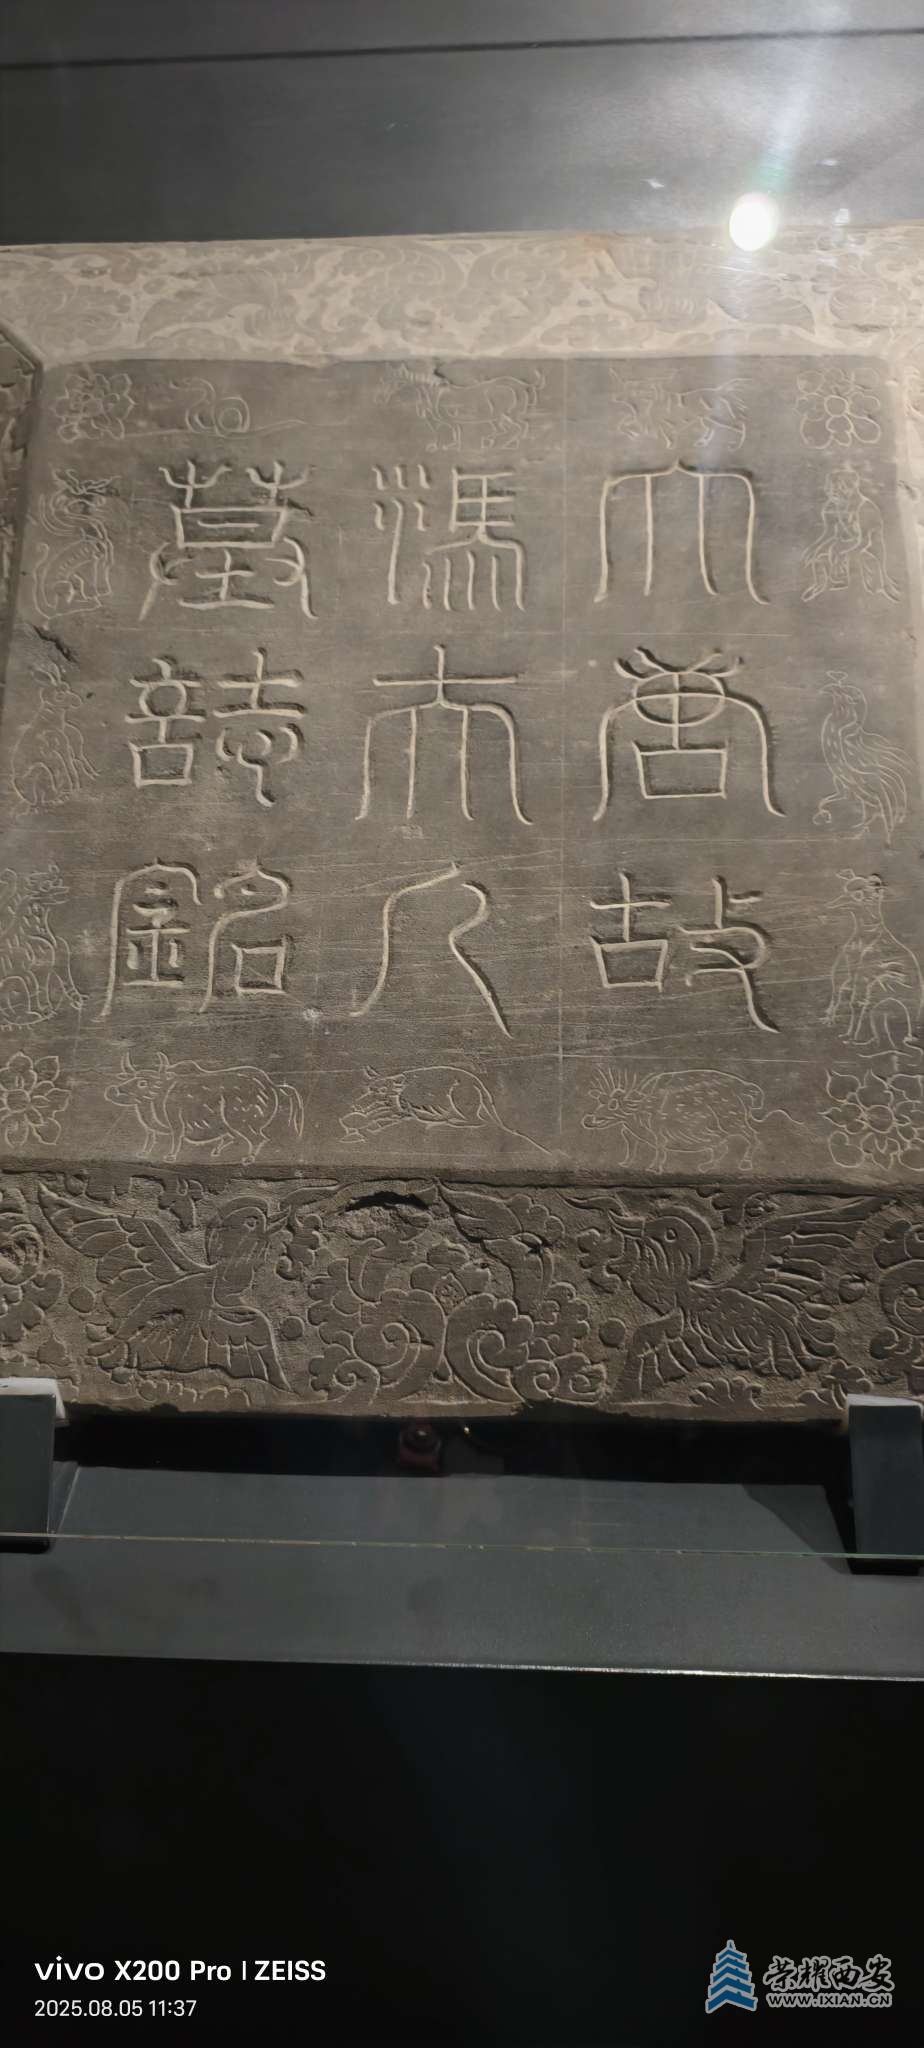 大唐故
馮夫人
墓誌銘
vivo X200 Pro | ZEISS
2025.08.05 11:37
荣耀西安
WWW.IXIAN.CN